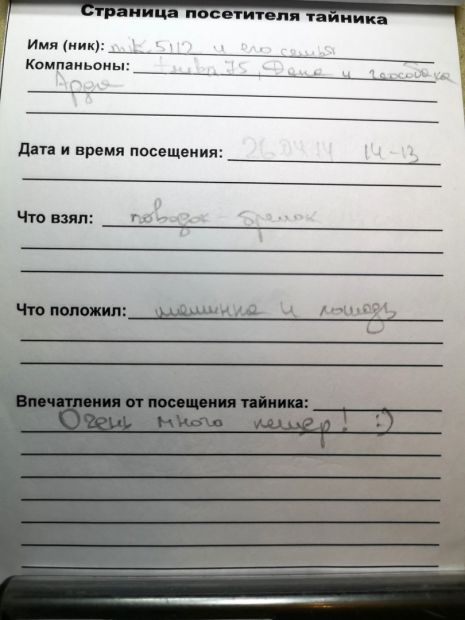 Страница посетителя тайника
Имя (ник): mik5112 и его семья
Компаньоны: 75, Дана и геособака
Арда
Дата и время посещения: 26.04.14 14-13
Что взял: поводок-брелок
Что положил: машинка и лошадь
Впечатления от посещения тайника:
Очень много пещер! :)